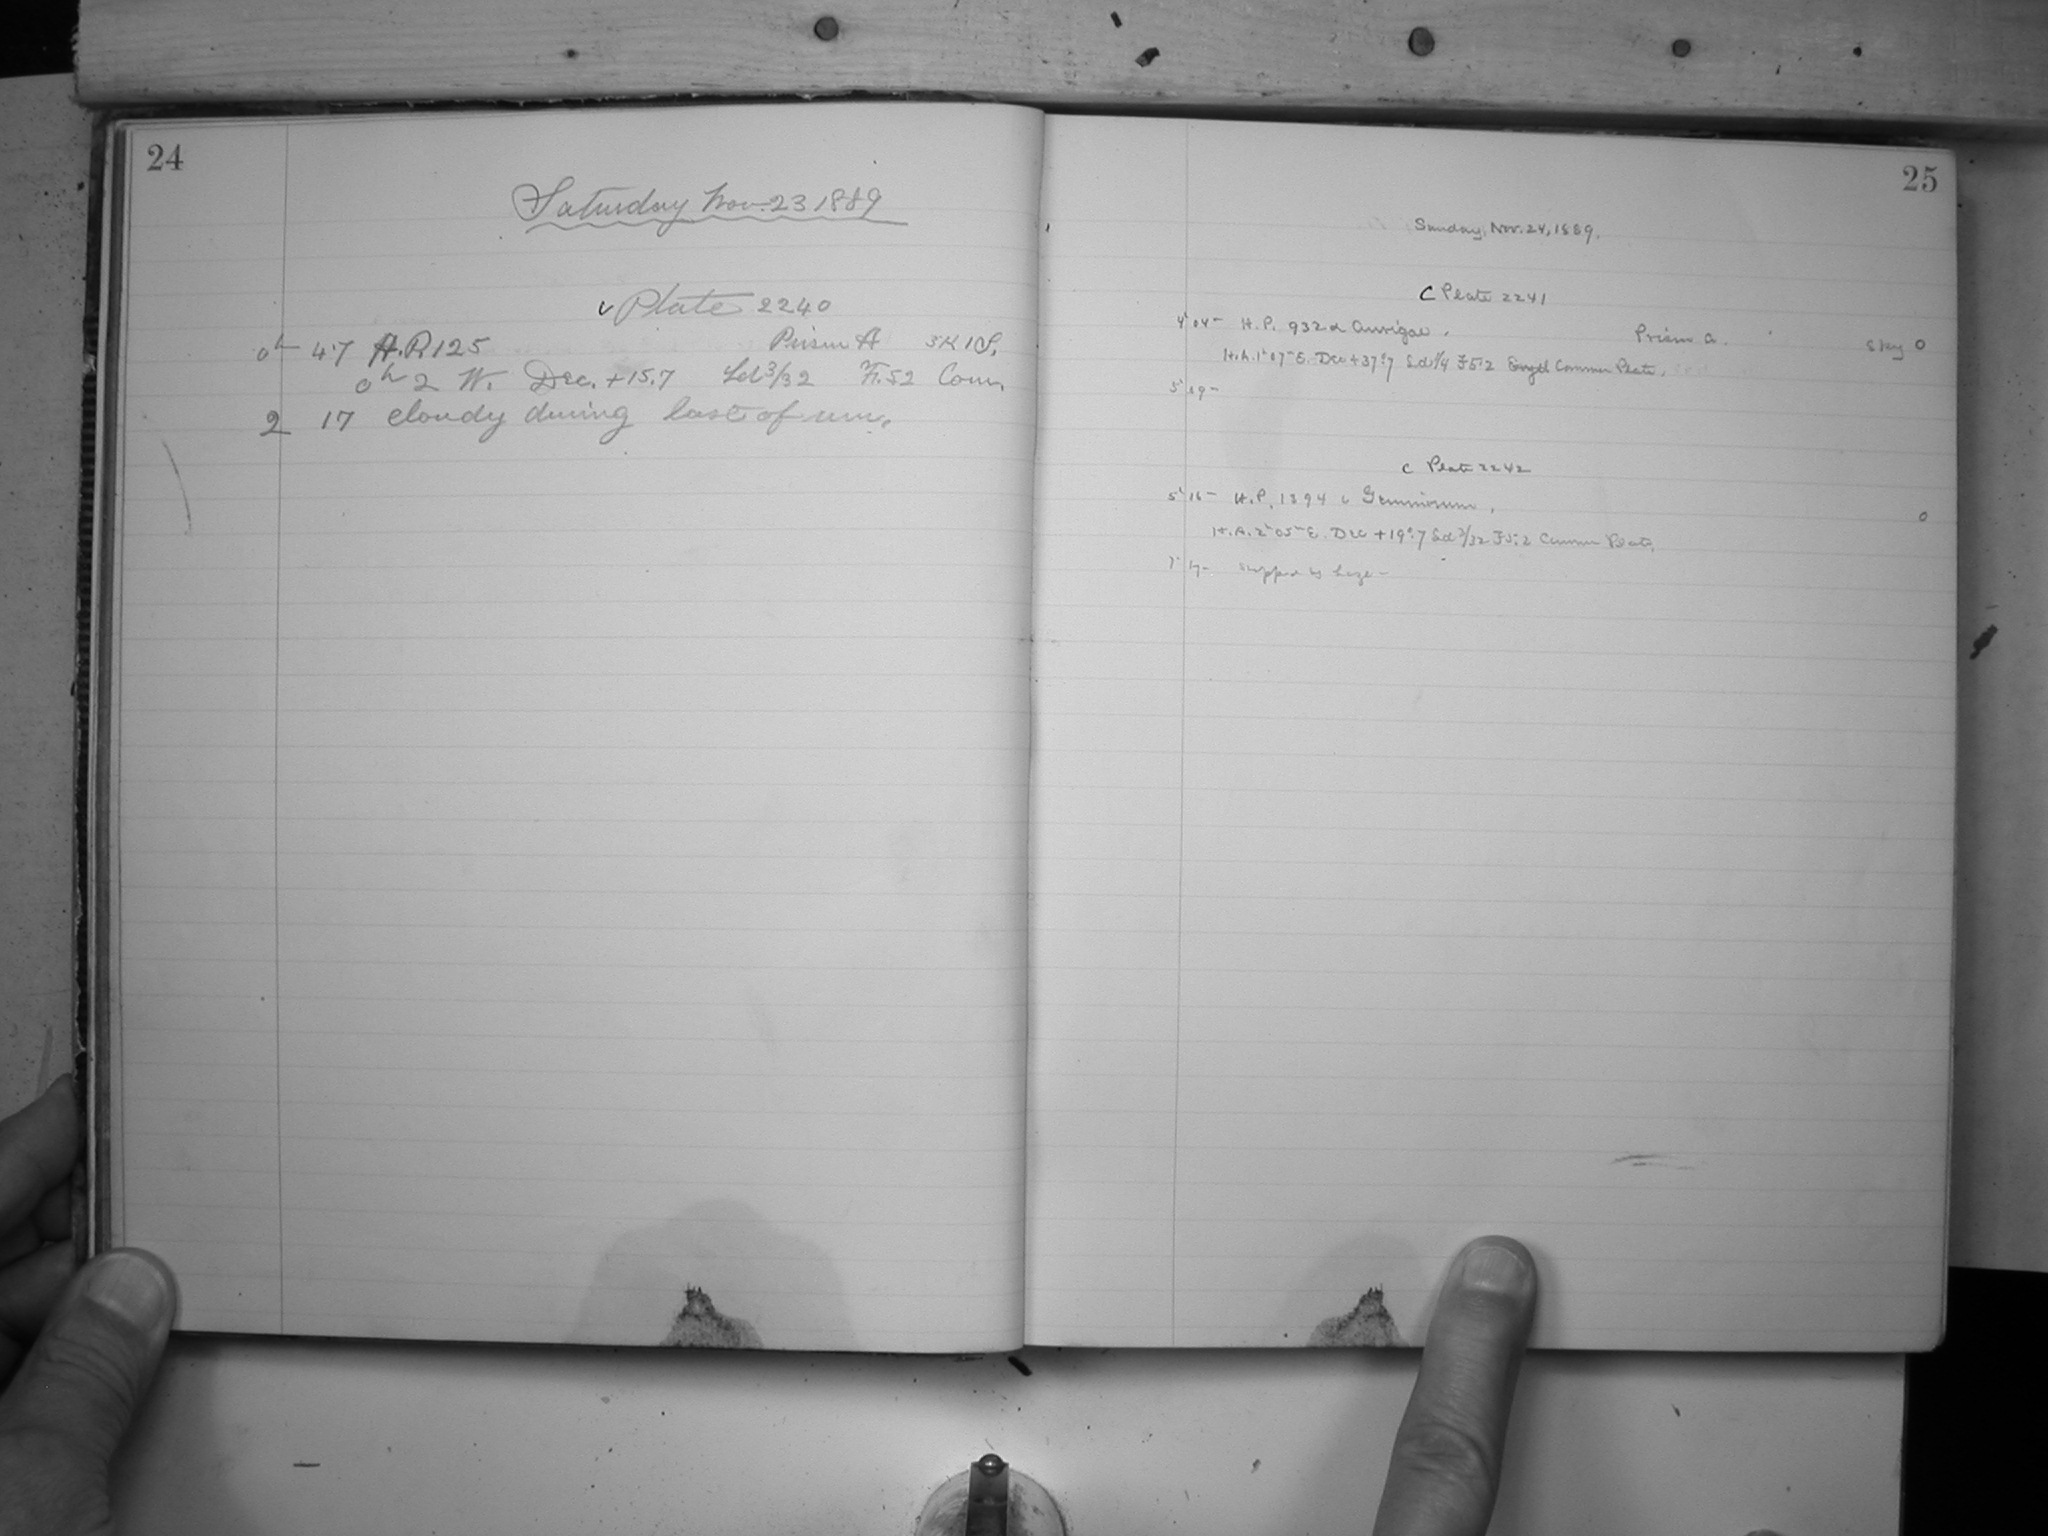 24
Saturday Nov. 23 1889
Plate 2240
0h 47 H.P. 125 Prism A 3K1S.
0h 2 W. Dec. +15.7 Sd 3/32 F.52 Com.
2 17 cloudy during last of run.
25
Sunday, Nov. 24, 1889.
C Plate 2241
4h 04m H.P. 932 α Aurigae. Prism A. Sky 0
H.A. 1h 07m E. Dec +37°.7 Sd 1/4 F5.2 Common Plate.
5h 09m
C Plate 2242
5h 16m H.P. 1394 ι Geminorum. 0
H.A. 2h 05m E. Dec +19°.7 Sd 3/32 F5.2 Common Plate.
17m Stopped by